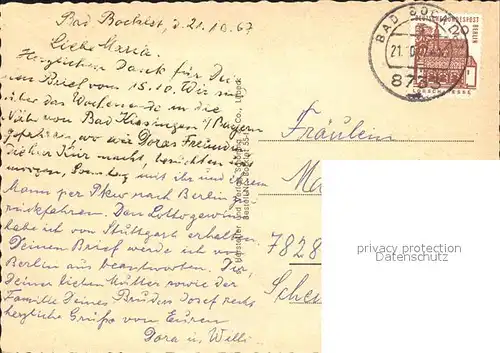 Bad Bocklet, d. 21.10.67
Liebe Maria.
Herzlichen Dank für Dei-
nen Brief vom 15.10. Wir sind
über das Wochenende in die
Nähe von Bad Kissingen i/Bayern
gefahren, wo wir Doras Freundin
die hier Kur macht, besuchten u.
morgen, Sonntag mit ihr und ihrem
Mann per Pkw nach Berlin zu-
rückfahren. Den Lottogewinn
habe ich von Stuttgart erhalten.
Deinen Brief werde ich von
Berlin aus beantworten. Dir,
Deiner lieben Mutter sowie der
Familie Deines Bruders Josef recht
herzliche Grüße von Euren
Dora u. Willi
Lübeck
DEUTSCHE BUNDESPOST BERLIN
LORSCH/HESSEN
BAD BOCK
21.10.
873
Fräulein
Ma
7828
privacy protection
Datenschutz